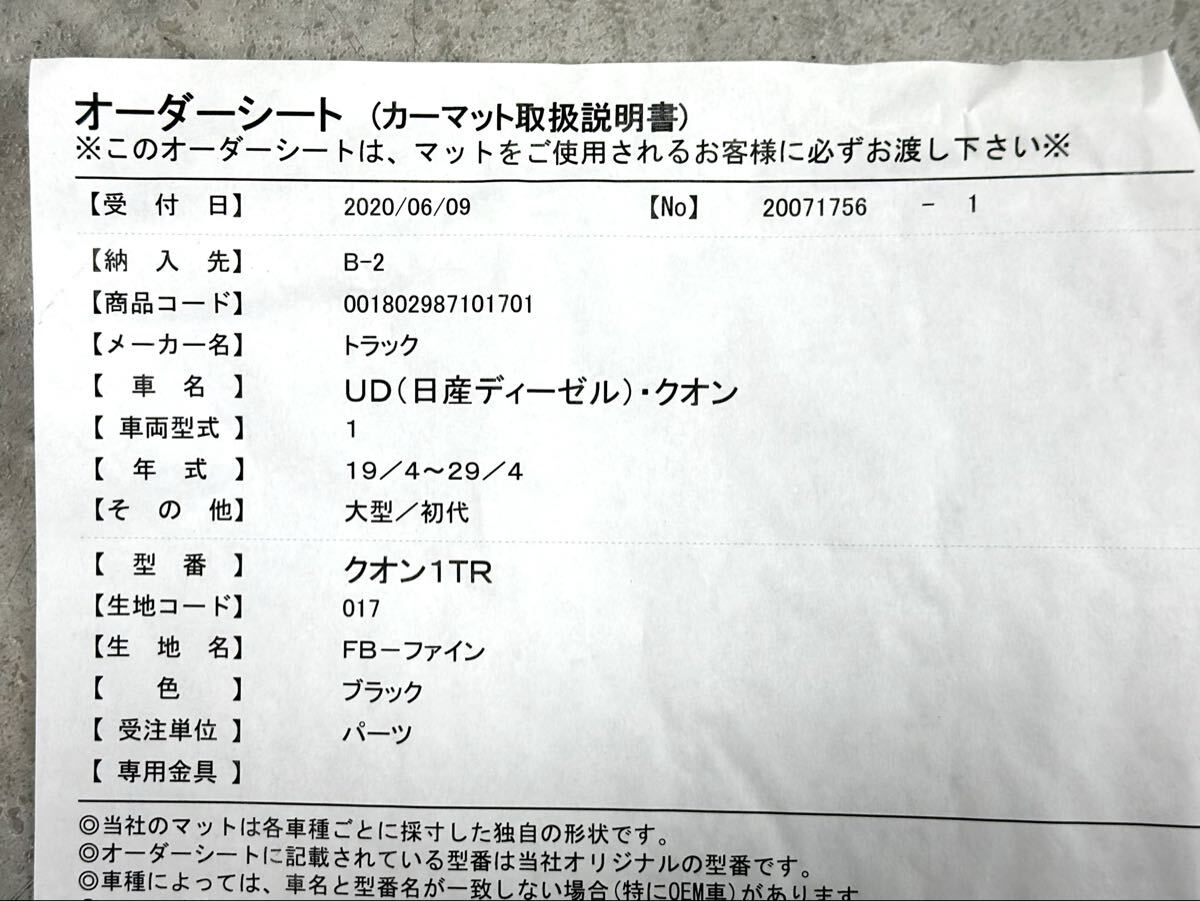 オーダーシート (カーマット取扱説明書)
※このオーダーシートは、マットをご使用されるお客様に必ずお渡し下さい※
【受 付 日】 2020/06/09 【No】 20071756 - 1
【納 入 先】 B-2
【商品コード】 001802987101701
【メーカー名】 トラック
【 車 名 】 UD(日産ディーゼル)・クオン
【 車両型式 】 1
【 年 式 】 19/4～29/4
【そ の 他】 大型/初代
【 型 番 】 クオン1TR
【生地コード】 017
【生 地 名】 FB-ファイン
【 色 】 ブラック
【 受注単位 】 パーツ
【 専用金具 】
◎当社のマットは各車種ごとに採寸した独自の形状です。
◎オーダーシートに記載されている型番は当社オリジナルの型番です。
◎車種によっては、車名と型番名が一致しない場合(特にOEM車)があります